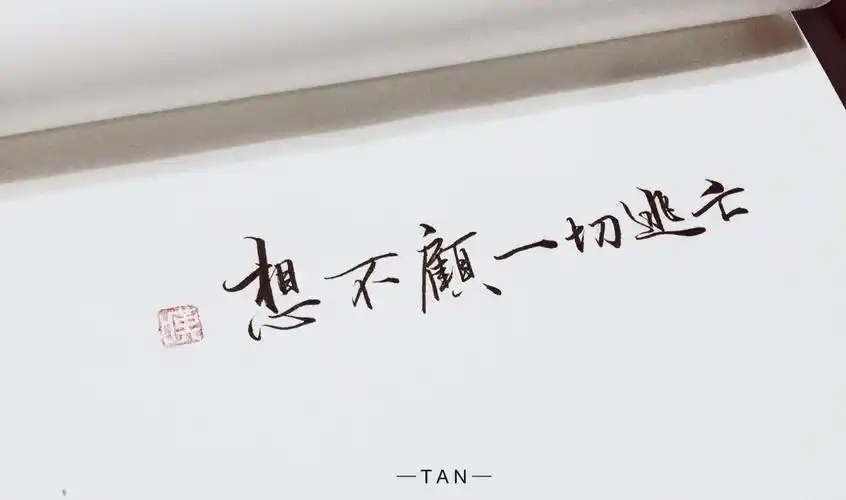 想不顧一切逃亡
—TAN—